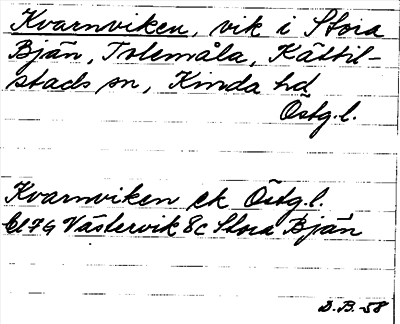 Kvarnviken, vik i Stora
Bjän, Tolemåla, Kättil-
stads sn, Kinda hd
Östg.l.
Kvarnviken ek Östg.l.
Bl 7G Västervik 8c Stora Bjän
D.B.-58